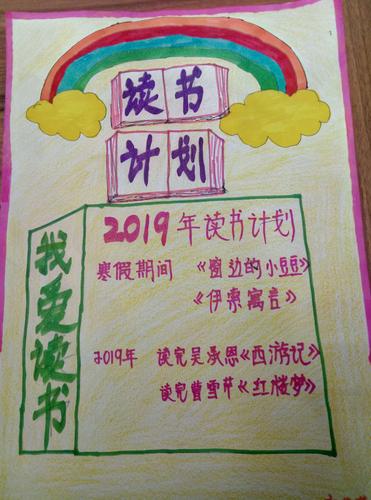 读书
计划
我爱读书
2019年读书计划
寒假期间 《窗边的小豆豆》
《伊索寓言》
2019年 读完吴承恩《西游记》
读完曹雪芹《红楼梦》